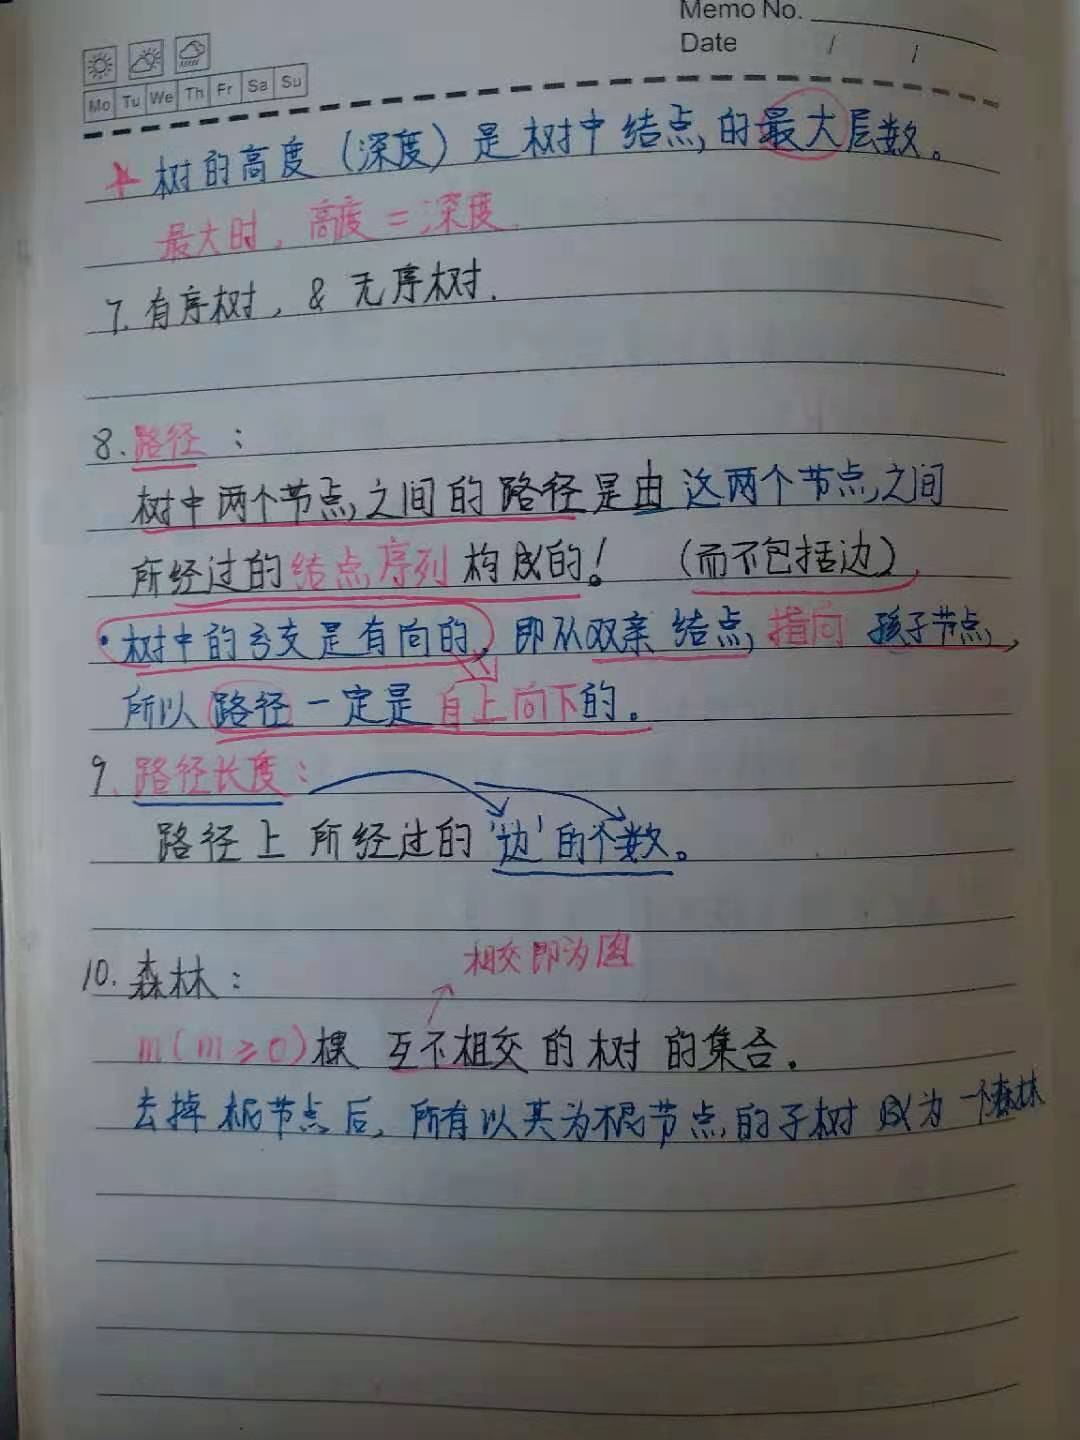 Memo No.
Date / /
Mo Tu We Th Fr Sa Su
树的高度（深度）是树中结点的最大层数。
最大时，高度=深度.
7. 有序树，& 无序树.
8. 路径：
树中两个节点之间的路径是由这两个节点之间
所经过的结点序列构成的！（而不包括边）
·树中的分支是有向的，即从双亲结点指向孩子节点，
所以路径一定是自上向下的。
9. 路径长度：
路径上所经过的‘边’的个数。
相交即为图
10. 森林：
m(m≥0)棵 互不相交的树的集合.
去掉根节点后，所有以其为根节点的子树成为一个森林